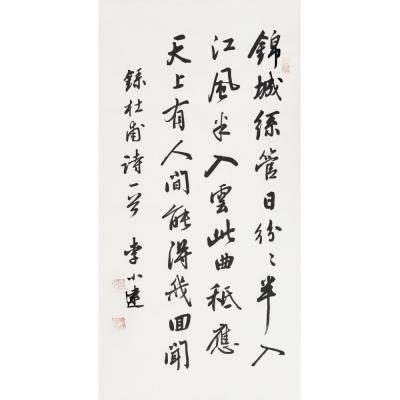 錦城絲管日紛々半入
江風半入雲此曲秖應
天上有人間能得幾回聞
錄杜甫詩一首 李小